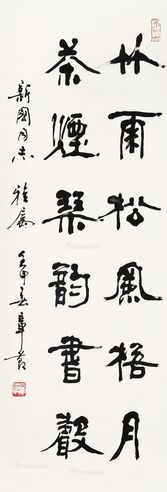 竹雨松風梧月
茶煙琴韵書聲
新國同志 雅屬